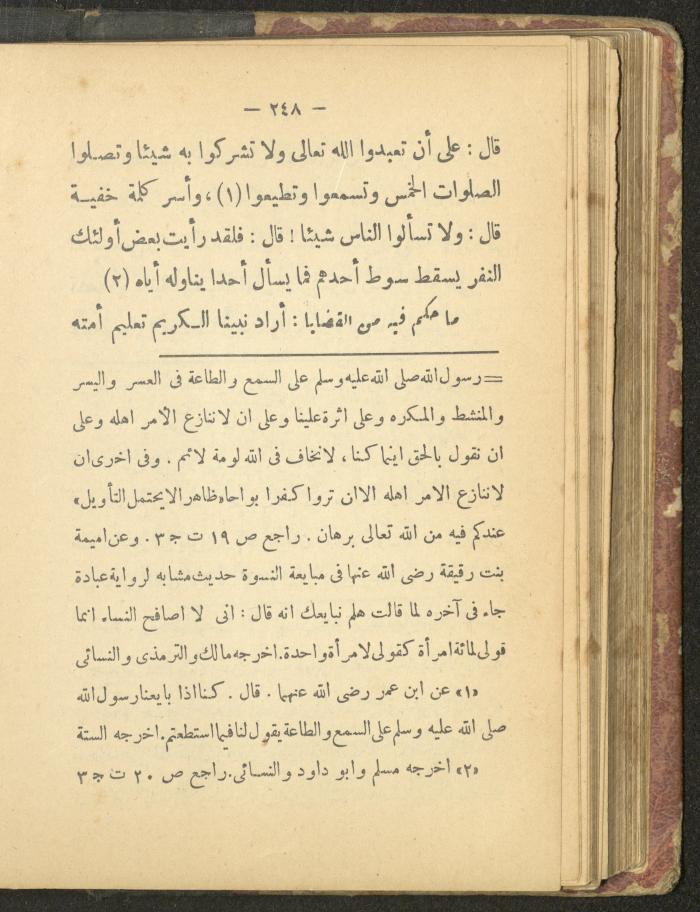 — ٢٤٨ —
قال : على أن تعبدوا الله تعالى ولا تشركوا به شيئا وتصلوا
الصلوات الخمس وتسمعوا وتطيعوا (١) ، وأسر كلمة خفيـة
قال : ولا تسألوا الناس شيئا ! قال : فلقد رأيت بعض أولئك
النفر يسقط سوط أحدهم فما يسأل أحدا يناوله أياه (٢)
ما حكم فيه من القضايا : أراد نبينا الـكريم تعليم أمته
= رسول الله صلى الله عليه وسلم على السمع والطاعة فى العسر واليسر
والمنشط والمـكره وعلى اثرة علينا وعلى ان لاننازع الأمر اهله وعلى
ان نقول بالحق اينما كنا ، لانخاف فى الله لومة لائم . وفى اخرى ان
لاننازع الامر اهله الاان تروا كفرا بواحا«ظاهرا لايحتمل التأويل»
عندكم فيه من الله تعالى برهان . راجع ص ١٩ ت ج ٣ . وعن اميمة
بنت رقيقة رضى الله عنها فى مبايعة النسوة حديث مشابه لرواية عبادة
جاء فى آخره لما قالت هلم نبايعك انه قال : انى لا اصافح النساء انما
قولى لمائة امرأة كقولى لامرأة واحدة. اخرجه مالك والترمذى والنسائى
«١» عن ابن عمر رضى الله عنهما . قال . كنا اذا بايعنا رسول الله
صلى الله عليه وسلم على السمع والطاعة يقول لنا فيما استطعتم. اخرجه الستة
«٢» اخرجه مسلم وابو داود والنسـائى. راجع ص ٢٠ ت ج ٣